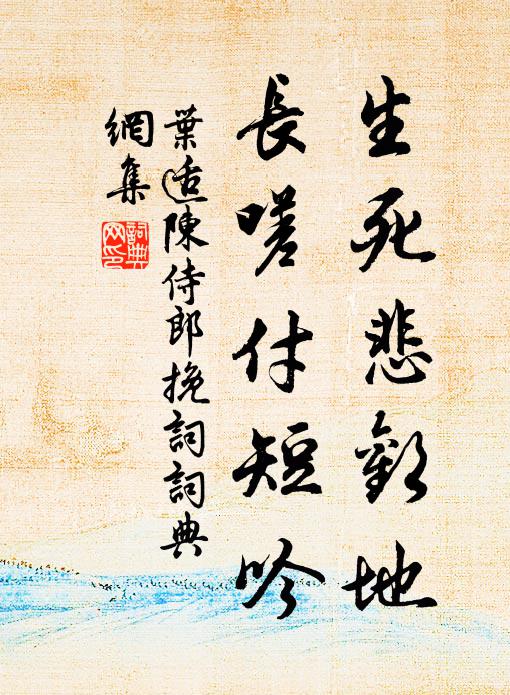 生死悲歡地
長嗟付短吟
葉适陳侍郎挽詞詞典
網集
詞典
网印